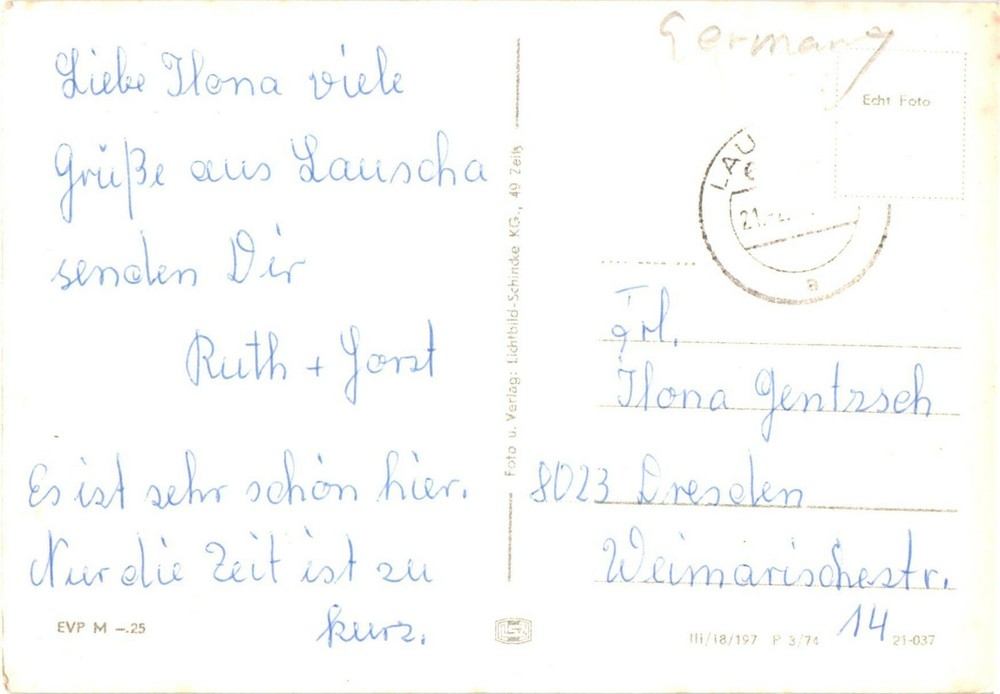 Liebe Ilona viele
Grüße aus Lauscha
senden Dir
Ruth + Horst
Es ist sehr schön hier.
Nur die Zeit ist zu
kurz.
EVP M –.25
Foto u. Verlag: Lichtbild-Schincke KG., 49 Zeitz
Germany
Echt Foto
LAU
21.
a
Frl.
Ilona Gentzsch
8023 Dresden
Weimarischestr.
14
III/18/197 P 3/74 21-037